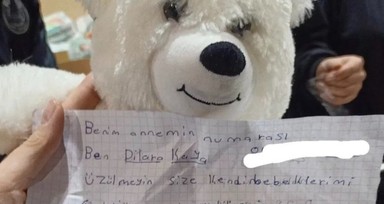 Benim annemin numarası
Ben Dilara Kaya
Üzülmeyin size Kendi bebeklerimi